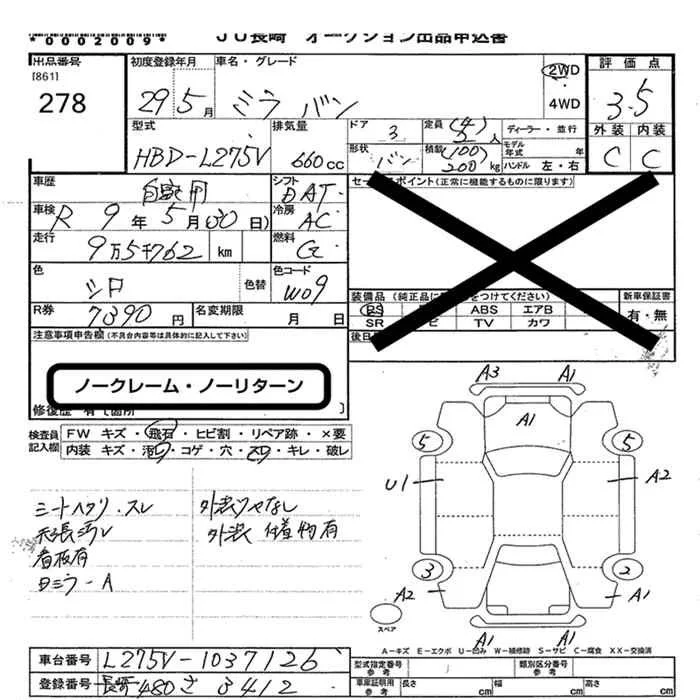 *0002009*
JU長崎 オークション出品申込書
出品番号
[861]
278
初度登録年月
29年5月
車名・グレード
ミラ バン
2WD
・
4WD
評価点
3.5
外装 内装
C C
型式
HBD-L275V
排気量
660cc
ドア
3
形状
バン
定員 (4)
2人
積載 (100)
200kg
ディーラー・並行
モデル年式 年
ハンドル 左・右
車歴
自家用
シフト
DAT
車検
R 9年5月(30日)
冷房
AC
走行
9万5千762 km
燃料
G
色
シロ
色替
色コード
W09
R券
7390円
名変期限
月 日
セールスポイント(正常に機能するものに限ります)
装備品 (純正品に をつけてください)
PS ABS エアB
SR ビ TV カワ
新車保証書
有・無
後日
注意事項申告欄(不具合内容等は具体的に記入して下さい)
ノークレーム・ノーリターン
修復歴 有〔箇所 〕
検査員記入欄
FW キズ・飛石・ヒビ割・リペア跡・×要
内装 キズ・汚レ・コゲ・穴・スレ・キレ・破レ
シートハタリ.スレ
天張汚レ
看板有
Dミラ-A
外装ツヤなし
外装 付着物有
A3 A1
A1
5 5
U1 A2
3 2
A2 A1
A1 A1
スペア
A-キズ E-エクボ U-凹み W-補修跡 S-サビ C-腐食 XX-交換済
車台番号
L275V-1037126
登録番号
長崎480さ3412
型式指定番号
参考
類別区分番号
参考
車庫証明用
参考
長さ cm
幅 cm
高さ cm